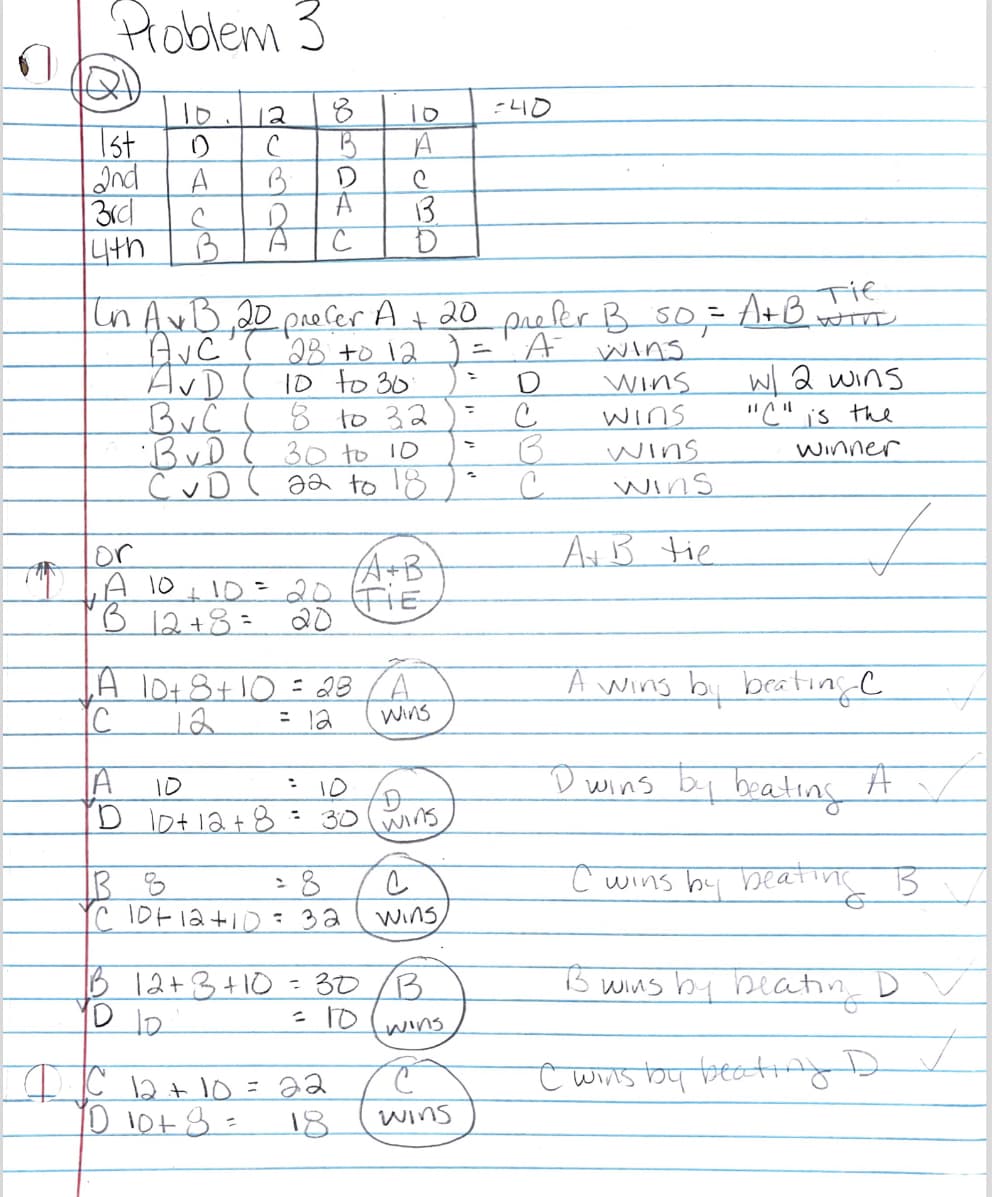 Problem 3
Q1
10. 12 8 10 =40
1st D C B A
2nd A B D C
3rd C D A B
4th B A C D
In AvB, 20 prefer A + 20 prefer B so, = A+B Tie win
AvC ( 28 to 12 ) = A wins
AvD ( 10 to 30 ) = D wins w/ 2 wins
BvC ( 8 to 32 ) = C wins "C" is the
BvD ( 30 to 10 ) = B wins winner
CvD ( 22 to 18 ) = C wins
or A+B tie
A 10 + 10 = 20 A+B
B 12+8 = 20 TiE
A 10+8+10 = 28 A A wins by beating C
C 12 = 12 wins
A 10 = 10 D D wins by beating A
D 10+12+8 = 30 wins
B 8 = 8 C C wins by beating B
C 10+12+10 = 32 wins
B 12+8+10 = 30 B B wins by beating D
D 10 = 10 wins
C 12 + 10 = 22 C C wins by beating D
D 10+8 = 18 wins